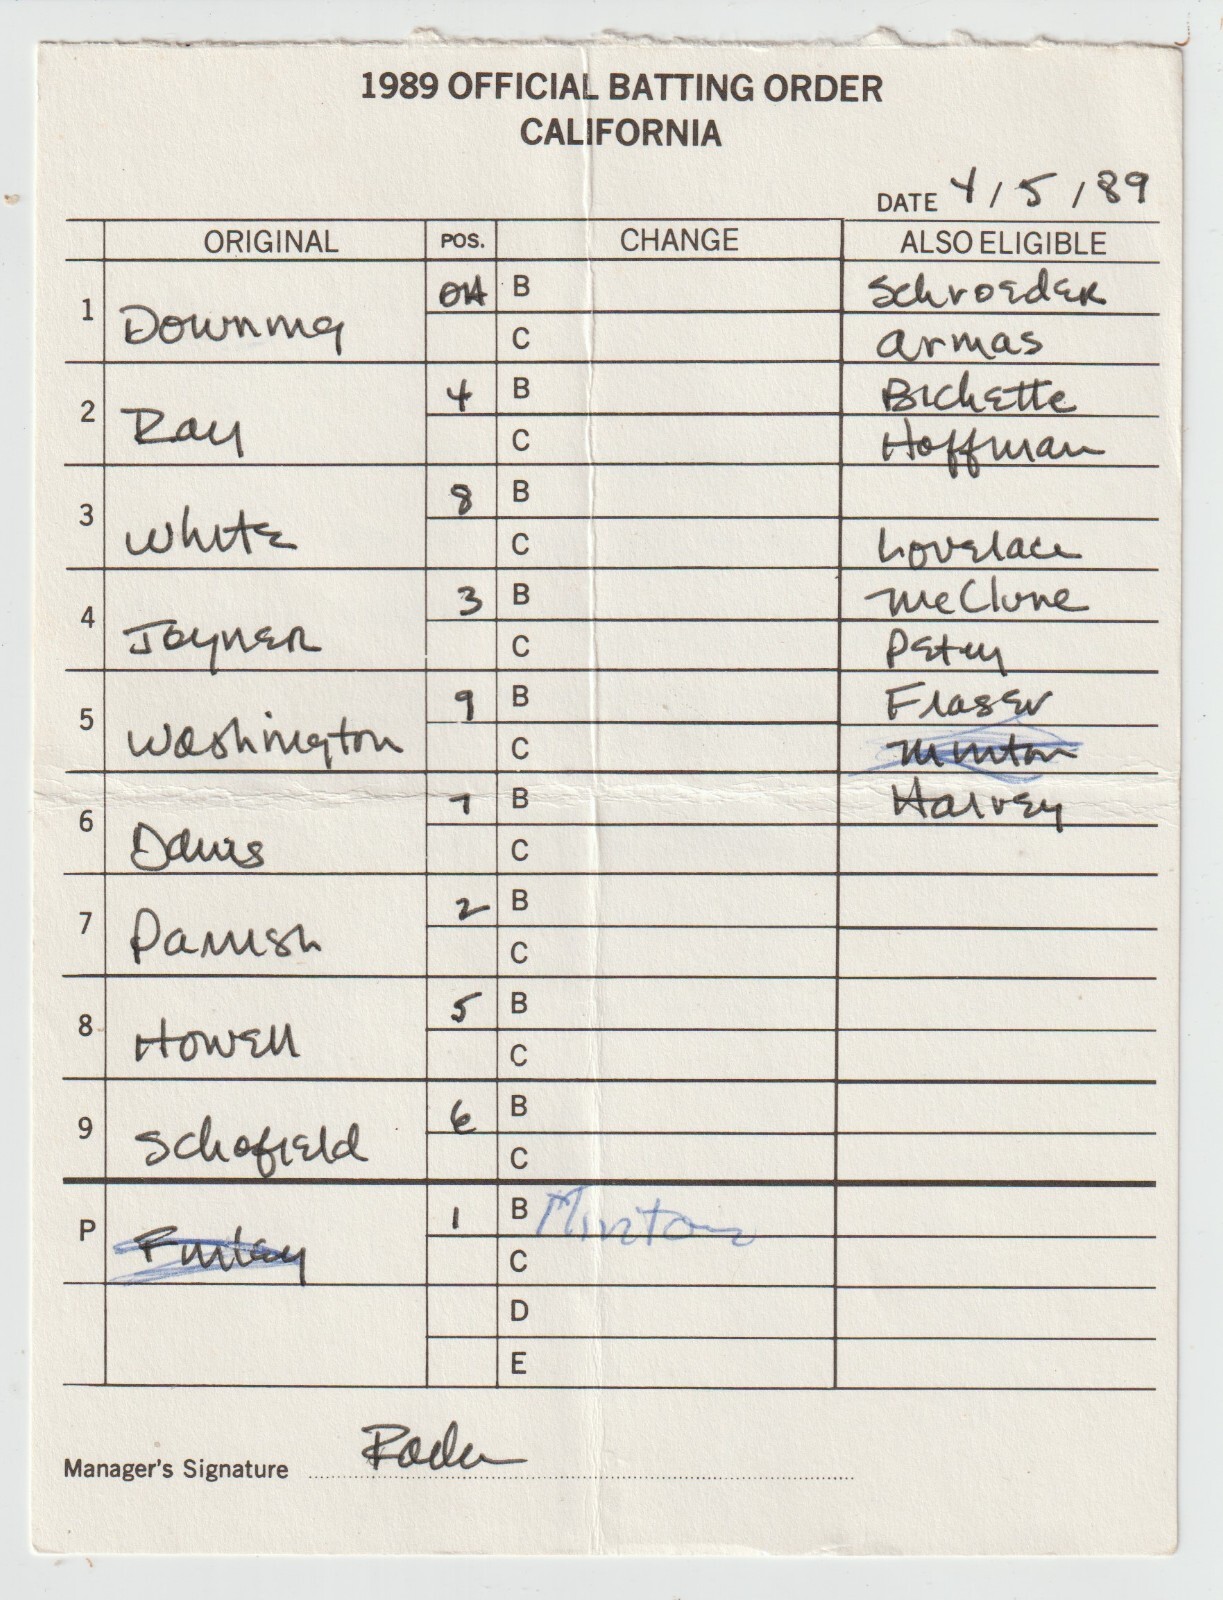 1989 OFFICIAL BATTING ORDER
CALIFORNIA
DATE 4/5/89
ORIGINAL POS. CHANGE ALSO ELIGIBLE
1 Downing DH B Schroeder
C Armas
2 Ray 4 B Bichette
C Hoffman
3 White 8 B
C Lovelace
4 Joyner 3 B McClure
C Petry
5 Washington 9 B Fraser
C Minton
6 Davis 7 B Harvey
C
7 Parrish 2 B
C
8 Howell 5 B
C
9 Schofield 6 B
C
P Finley 1 B Minton
C
D
E
Manager's Signature Rader